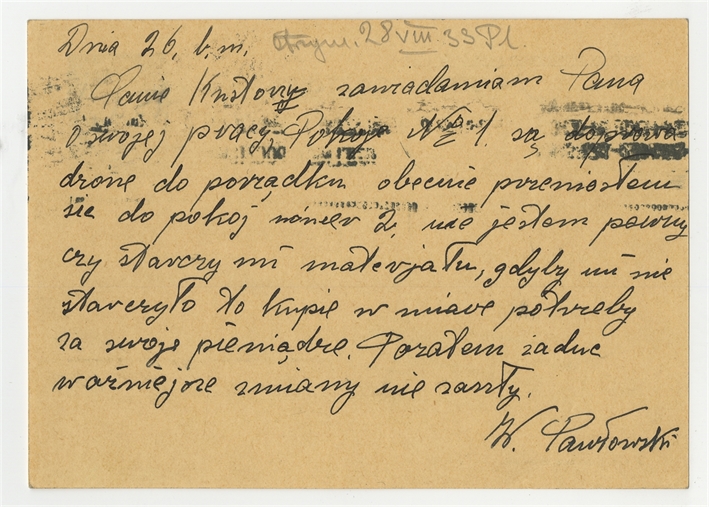 Dnia 26. b.m. otrzym. 28 VIII 33 Pl
Panie Kustoszu zawiadamiam Pana
o swojej pracy, Pokoje № 1. są doprowa
dzone do porządku obecnie przeniosłem
sie do pokoj nómer 2, nie jestem pewny
czy starczy mi materjału, gdyby mi nie
starczyło to kupie w miare potrzeby
za swoje pieniądze. Pozatem żadne
ważniejsze zmiany nie zaszły.
W. Pawłowski